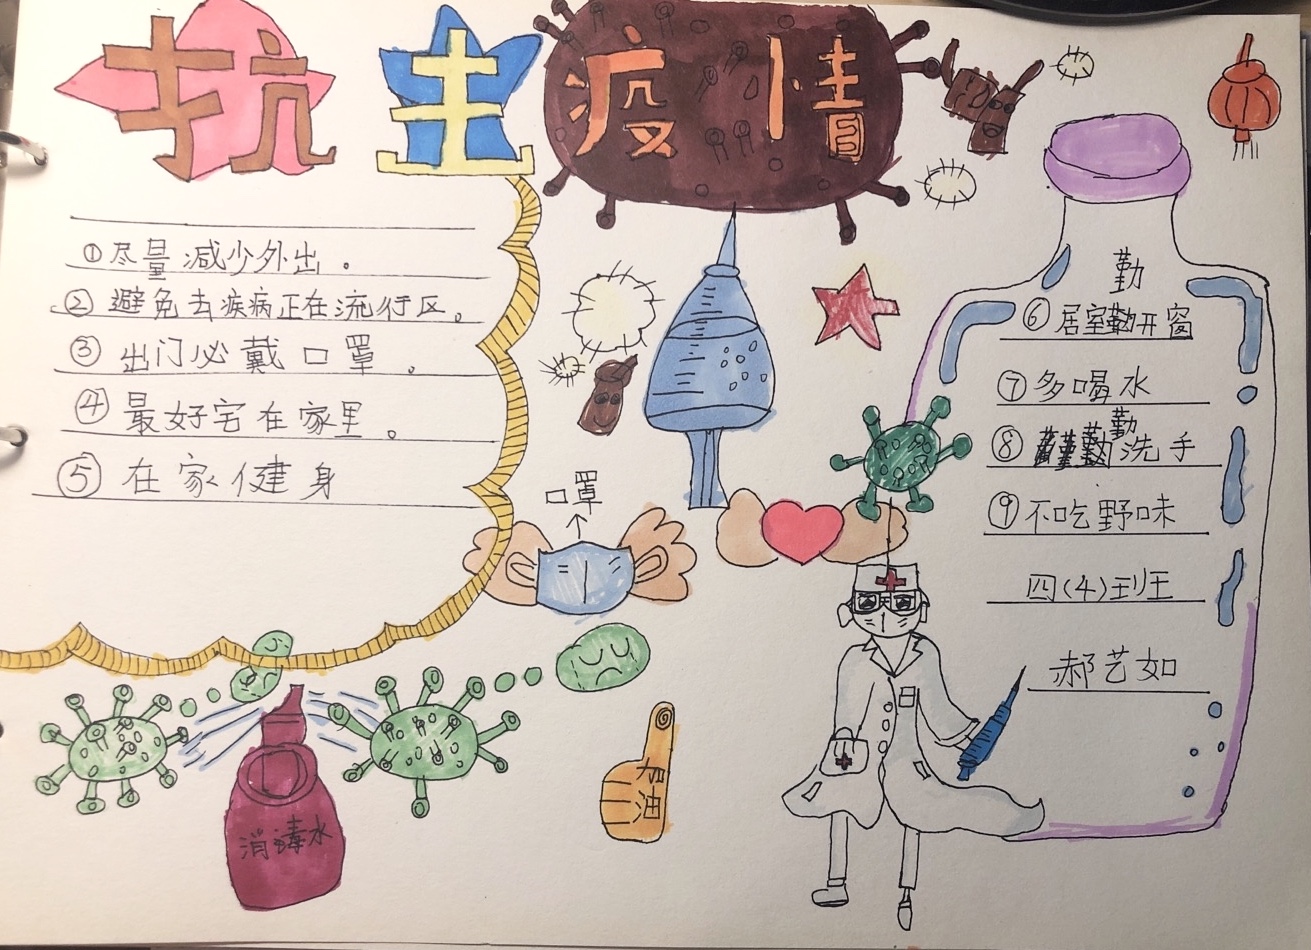 抗击疫情
①尽量减少外出。
②避免去疾病正在流行区。
③出门必戴口罩。
④最好宅在家里。
⑤在家健身
口罩
消毒水
加油
⑥居室勤开窗
⑦多喝水
⑧勤洗手
⑨不吃野味
四(4)班
郝艺如